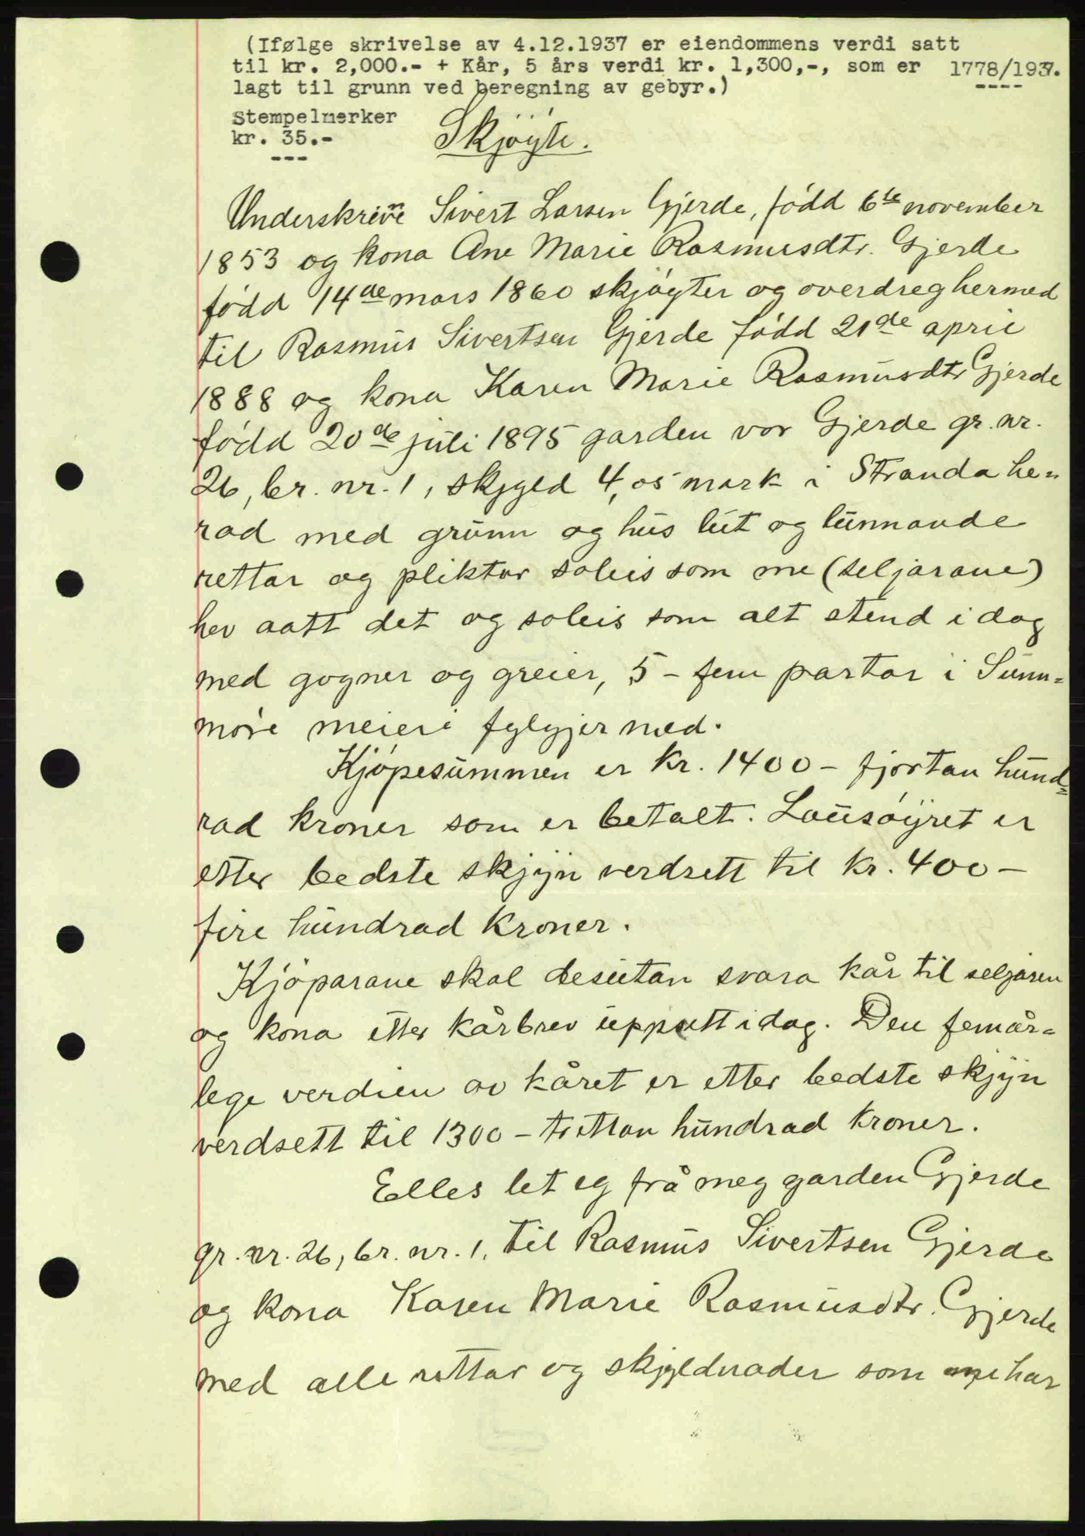 (Ifølge skrivelse av 4.12.1937 er eiendommens verdi satt
til kr. 2,000.- + Kår, 5 års verdi kr. 1,300,-, som er 1778/1937.
lagt til grunn ved beregning av gebyr.)
Stempelmerker
kr. 35.-
Skjøyte.
Underskrivne Sivert Larsen Gjerde, född 6te november
1853 og kona Ane Marie Rasmusdtr. Gjerde
född 14de mars 1860 skjöyter og overdreg hermed
til Rasmus Sivertsen Gjerde född 21de april
1888 og kona Karen Marie Rasmusdtr Gjerde
född 20de juli 1895 garden vor Gjerde gr. nr.
26, br. nr. 1, skyld 4,05 mark i Stranda he=
rad med grunn og hus lut og lunnande
rettar og pliktar soleis som me (seljarane)
hev aatt det og soleis som alt stend i dag
med gogner og greier, 5 - fem partar i Sunn=
möre meieri fylgjer med.
Kjöpesummen er kr. 1400 - fjortan hund=
rad kroner som er betalt. Lausöyret er
etter bedste skjyn verdsett til kr. 400 -
fire hundrad kroner.
Kjöparane skal desutan svara kår til seljaren
og kona etter kårbrev uppsett idag. Den femår=
lege verdien av kåret er etter bedste skjyn
verdsett til 1300 - trettan hundrad kroner.
Elles let eg frå meg garden Gjerde
gr. nr. 26, br. nr. 1. til Rasmus Sivertsen Gjerde
og kona Karen Marie Rasmusdtr. Gjerde
med alle rettar og skjyldnader som me har